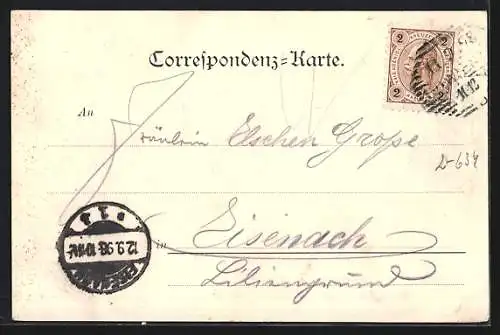 Correspondenz=Karte.
2 2
An Fräulein Elschen Grope
2-634
in Eisenach
Liliengrund
12.9.98